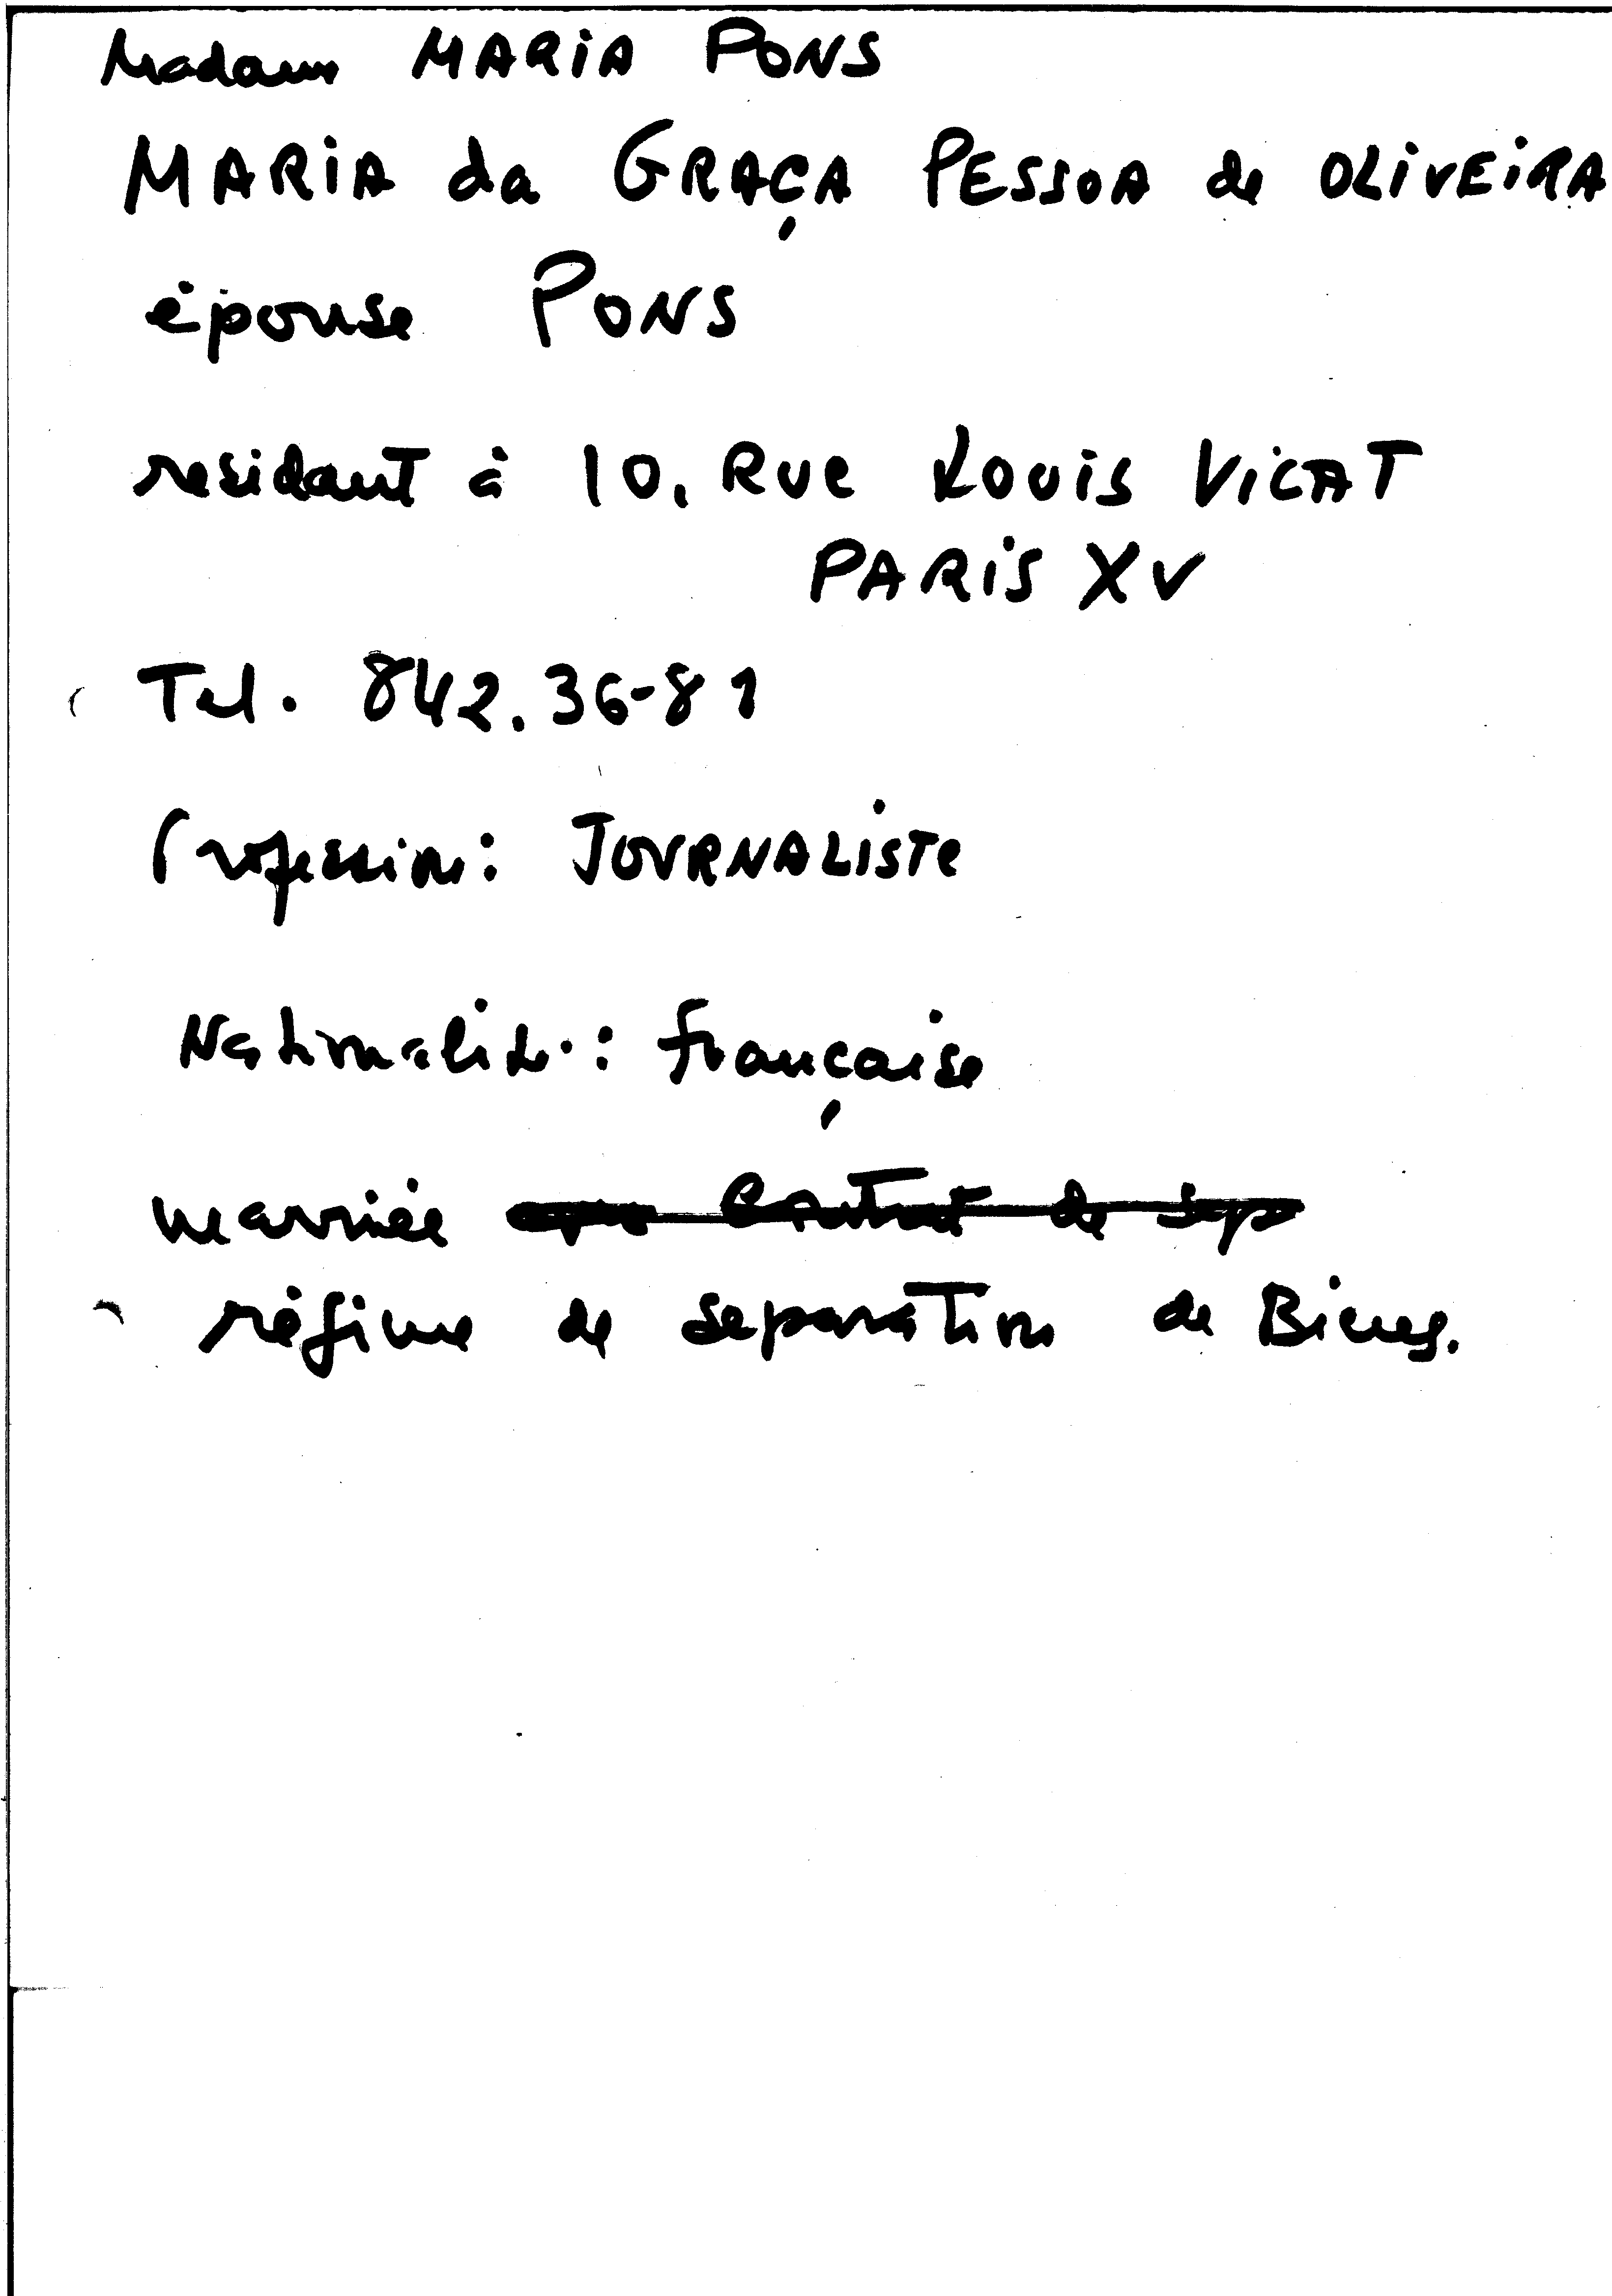 Madame MARIA PONS
MARIA da GRAÇA PESSOA de OLIVEIRA
épouse PONS
residant à 10, Rue LOUIS VICAT
PARIS XV
Tel. 842.36-81
Profession: JOURNALISTE
Nationalité: française
marriée Contrat de sep
régime de separation de Biens.